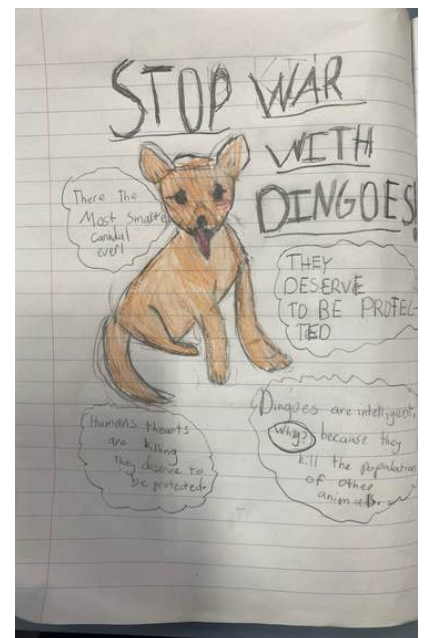 STOP WAR
WITH
DINGOES!
There The
Most Smartest
Canidal
ever!
THEY
DESERVE
TO BE PROTEC-
TED
Humans thearts
are killing
they deserve to
be protected.
Dingoes are intelligent,
Why? because they
kill the population
of other
animals.